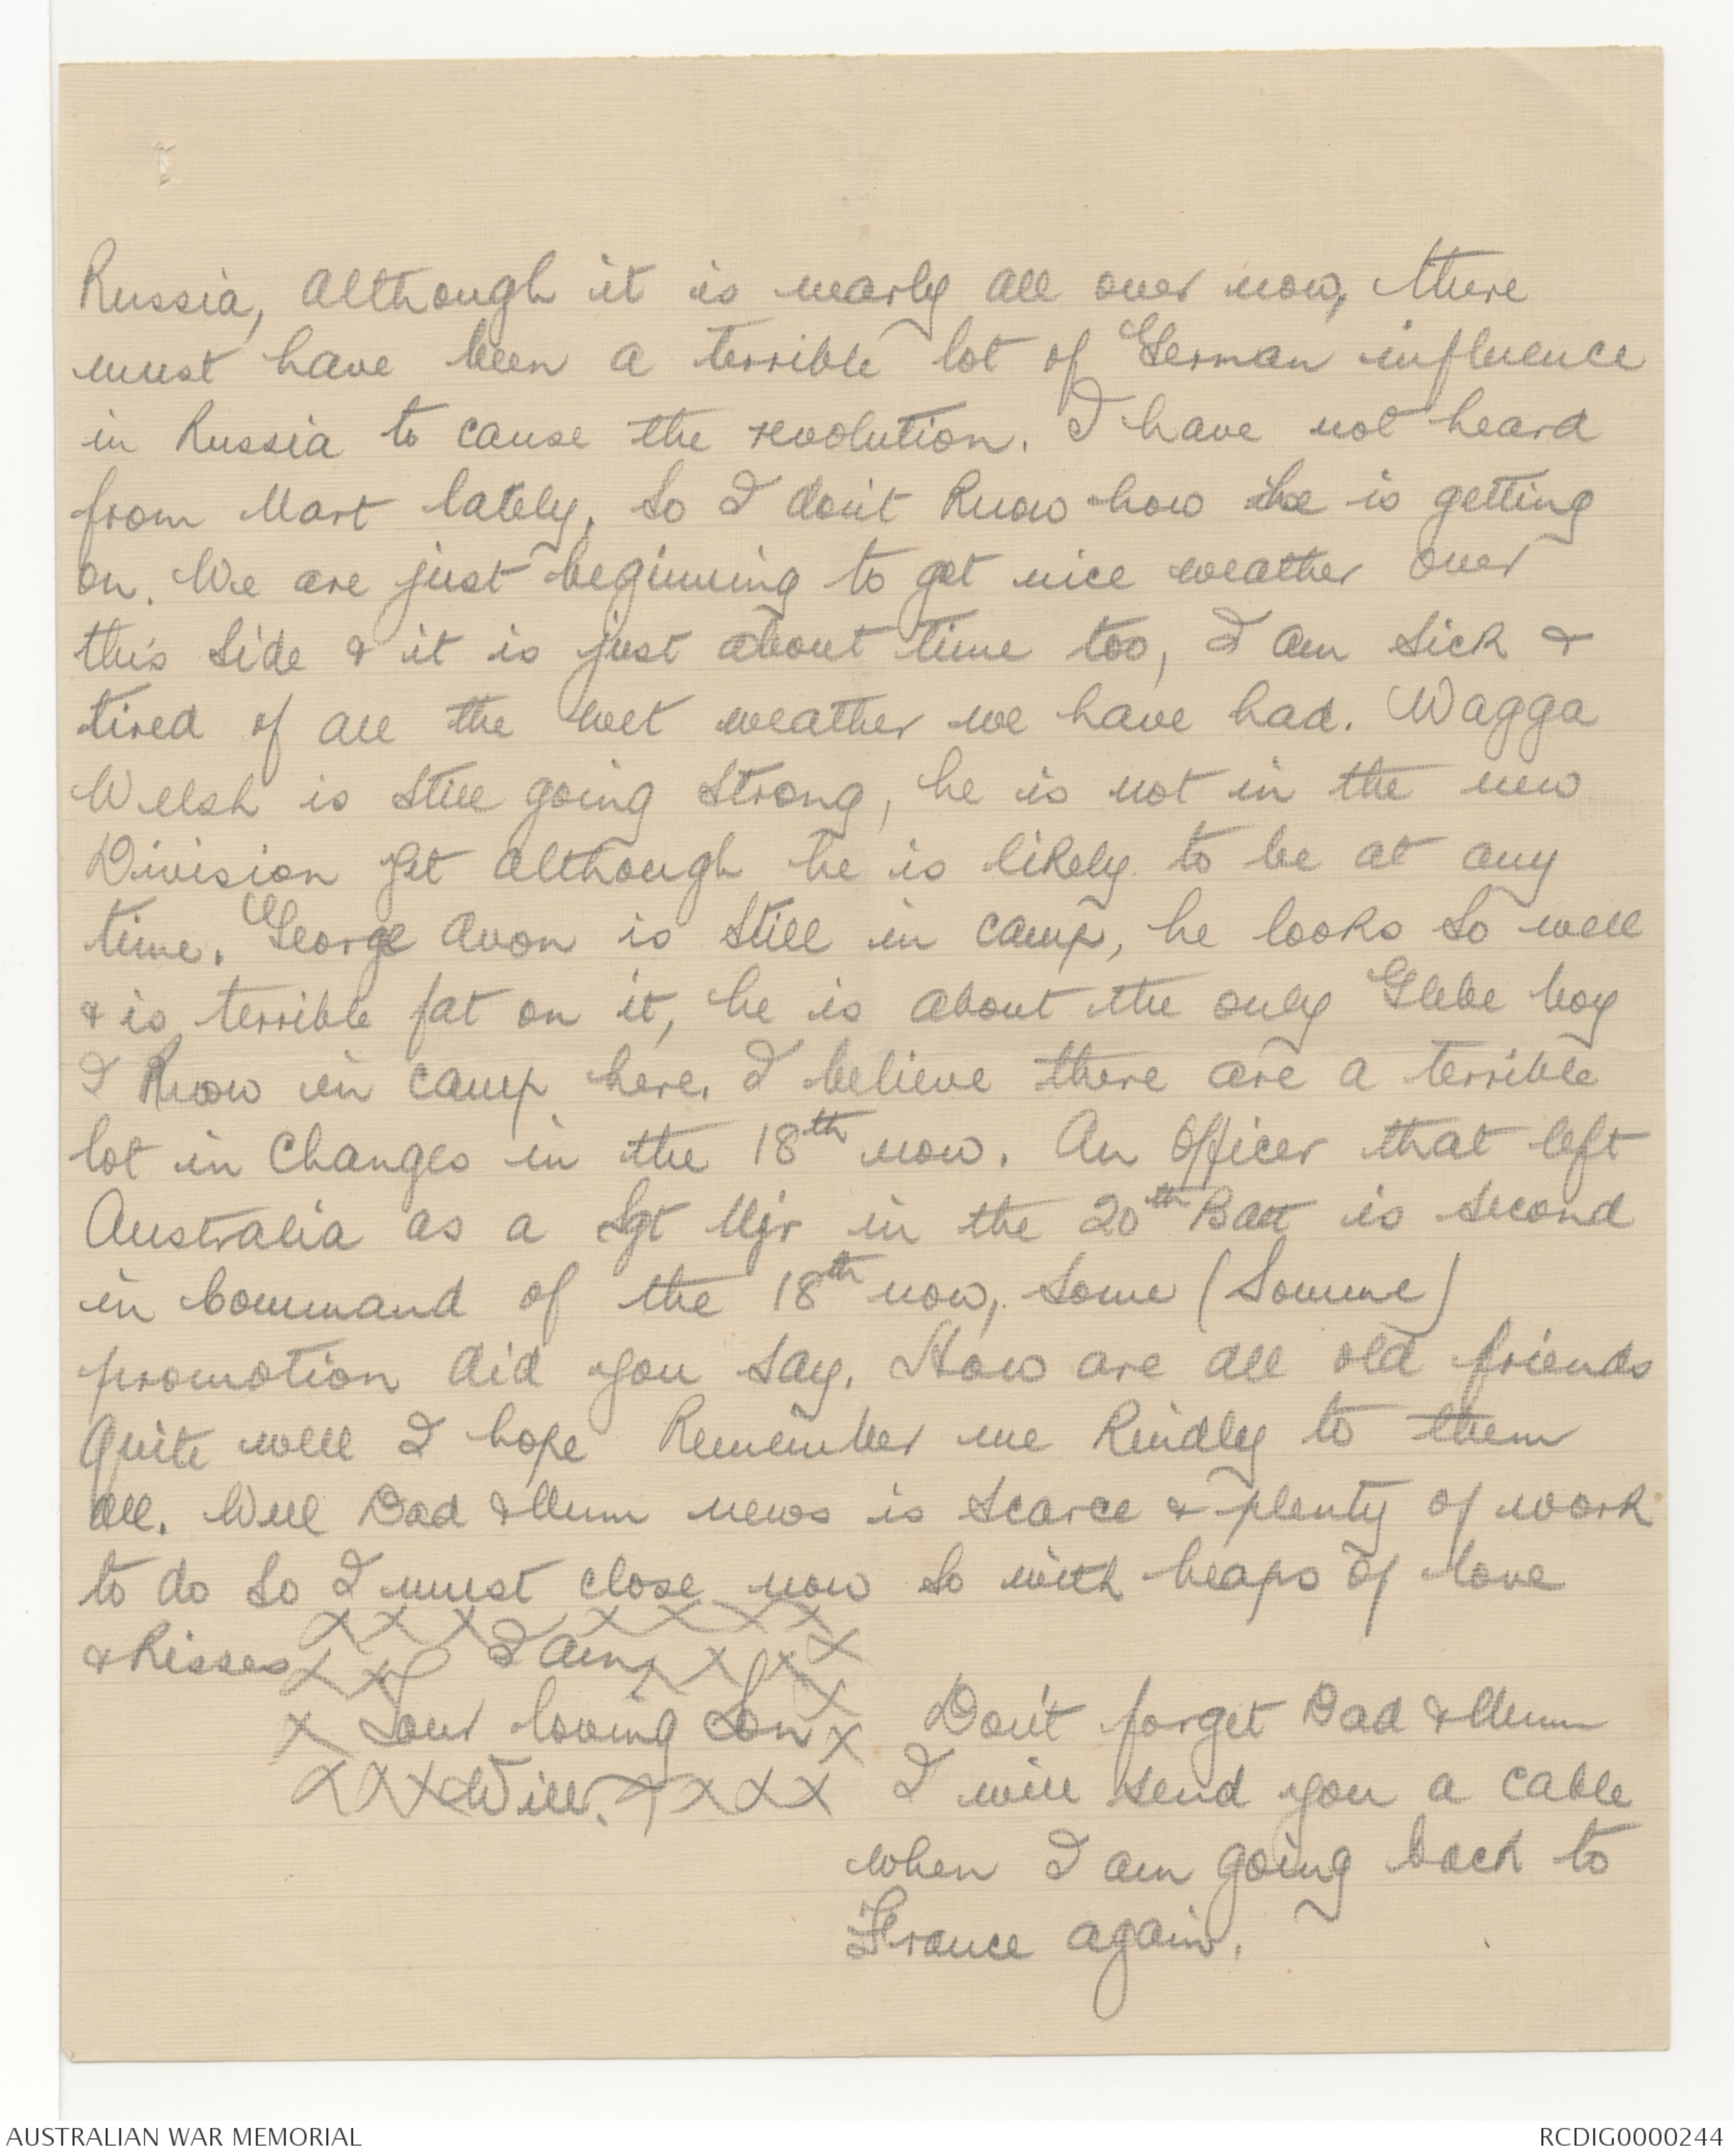 Russia, although it is nearly all over now, there
must have been a terrible lot of German influence
in Russia to cause the revolution. I have not heard
from Mart lately, so I don't know how she is getting
on. We are just beginning to get nice weather over
this side & it is just about time too, I am sick &
tired of all the wet weather we have had. Wagga
Welsh is still going strong, he is not in the new
Division yet although he is likely to be at any
time. George Avon is still in camp, he looks so well
& is terrible fat on it, he is about the only Glebe boy
I know in camp here. I believe there are a terrible
lot in changes in the 18th now. An Officer that left
Australia as a Sgt Mjr in the 20th Batt is second
in Command of the 18th now, some (Somme)
promotion did you say. How are all old friends
quite well I hope Remember me kindly to them
all. Well Dad & Mum news is scarce & plenty of work
to do so I must close now so with heaps of love
x x x x x x x x
& kisses x x I am, x x x x
x Your loving Son x x
x x x Will. x x x x
Don't forget Dad & Mum
I will send you a cable
when I am going back to
France again.
AUSTRALIAN WAR MEMORIAL
RCDIG0000244